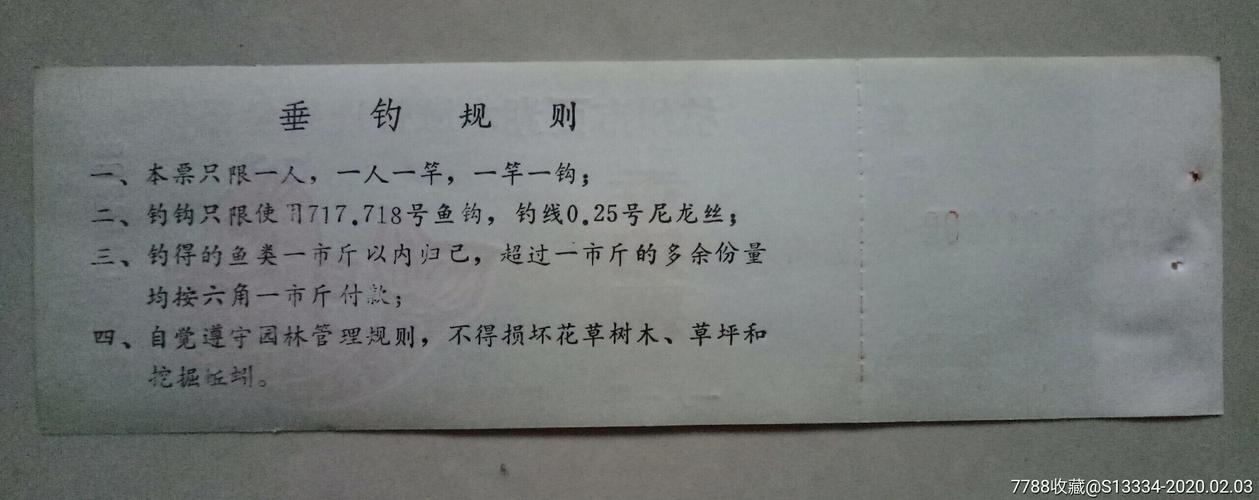 垂钓规则
一、本票只限一人，一人一竿，一竿一钩；
二、钓钩只限使用717.718号鱼钩，钓线0.25号尼龙丝；
三、钓得的鱼类一市斤以内归己，超过一市斤的多余份量
均按六角一市斤付款；
四、自觉遵守园林管理规则，不得损坏花草树木、草坪和
挖掘蚯蚓。
7788收藏@S13334-2020.02.03